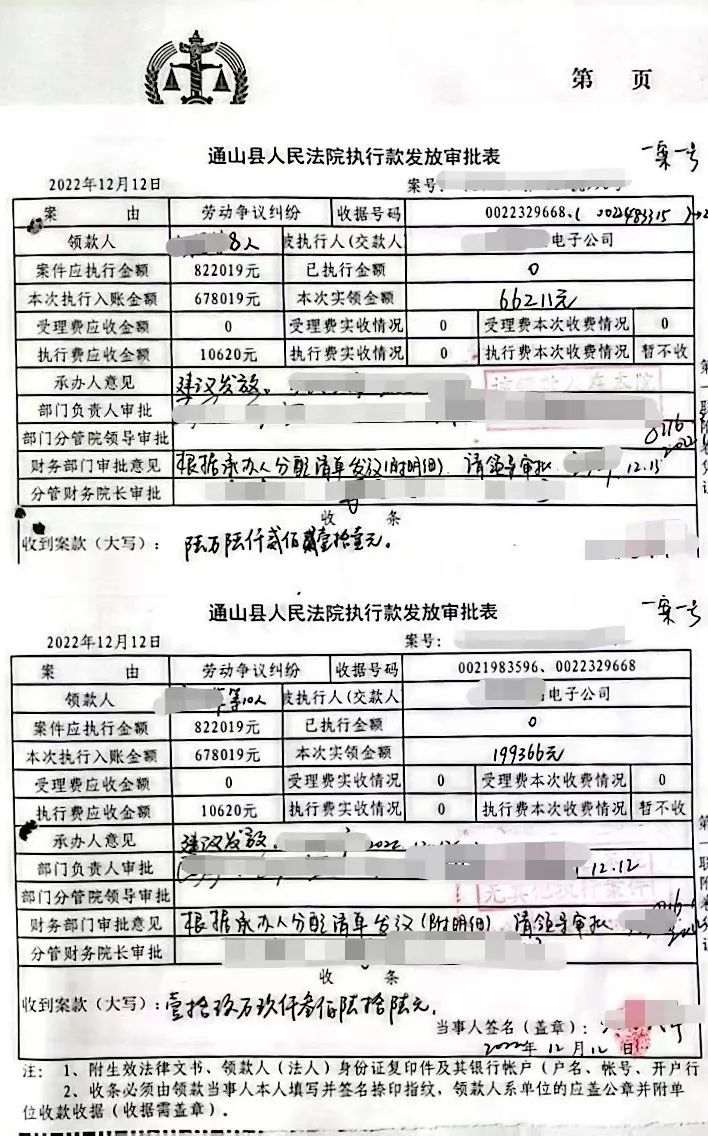 第 页
通山县人民法院执行款发放审批表
一案一号
2022年12月12日 案号:
案 由 劳动争议纠纷 收据号码 0022329668、(0022483315)
领款人 8人 被执行人(交款人 电子公司
案件应执行金额 822019元 已执行金额 0
本次执行入账金额 678019元 本次实领金额 66211元
受理费应收金额 0 受理费实收情况 0 受理费本次收费情况 0
执行费应收金额 10620元 执行费实收情况 0 执行费本次收费情况 暂不收
承办人意见 建议发放。
部门负责人审批
部门分管院领导审批
财务部门审批意见 根据承办人分配清单发放(附明细) 请领导审批 12.15
分管财务院长审批
收 条
收到案款(大写): 陆万陆仟贰佰壹拾壹元。
通山县人民法院执行款发放审批表
一案一号
2022年12月12日 案号:
案 由 劳动争议纠纷 收据号码 0021983596、0022329668
领款人 等10人 被执行人(交款人 电子公司
案件应执行金额 822019元 已执行金额 0
本次执行入账金额 678019元 本次实领金额 199366元
受理费应收金额 0 受理费实收情况 0 受理费本次收费情况 0
执行费应收金额 10620元 执行费实收情况 0 执行费本次收费情况 暂不收
承办人意见 建议发放.
部门负责人审批 12.12
无其他执行案件
部门分管院领导审批
财务部门审批意见 根据承办人分配清单发放(附明细) 请领导审批
分管财务院长审批
收 条
收到案款(大写): 壹拾玖万玖仟叁佰陆拾陆元.
当事人签名(盖章):
2022年12月12日
注: 1、附生效法律文书、领款人(法人)身份证复印件及其银行帐户(户名、帐号、开户行
2、收条必须由领款当事人本人填写并签名捺印指纹,领款人系单位的应盖公章并附单
位收款收据(收据需盖章)。